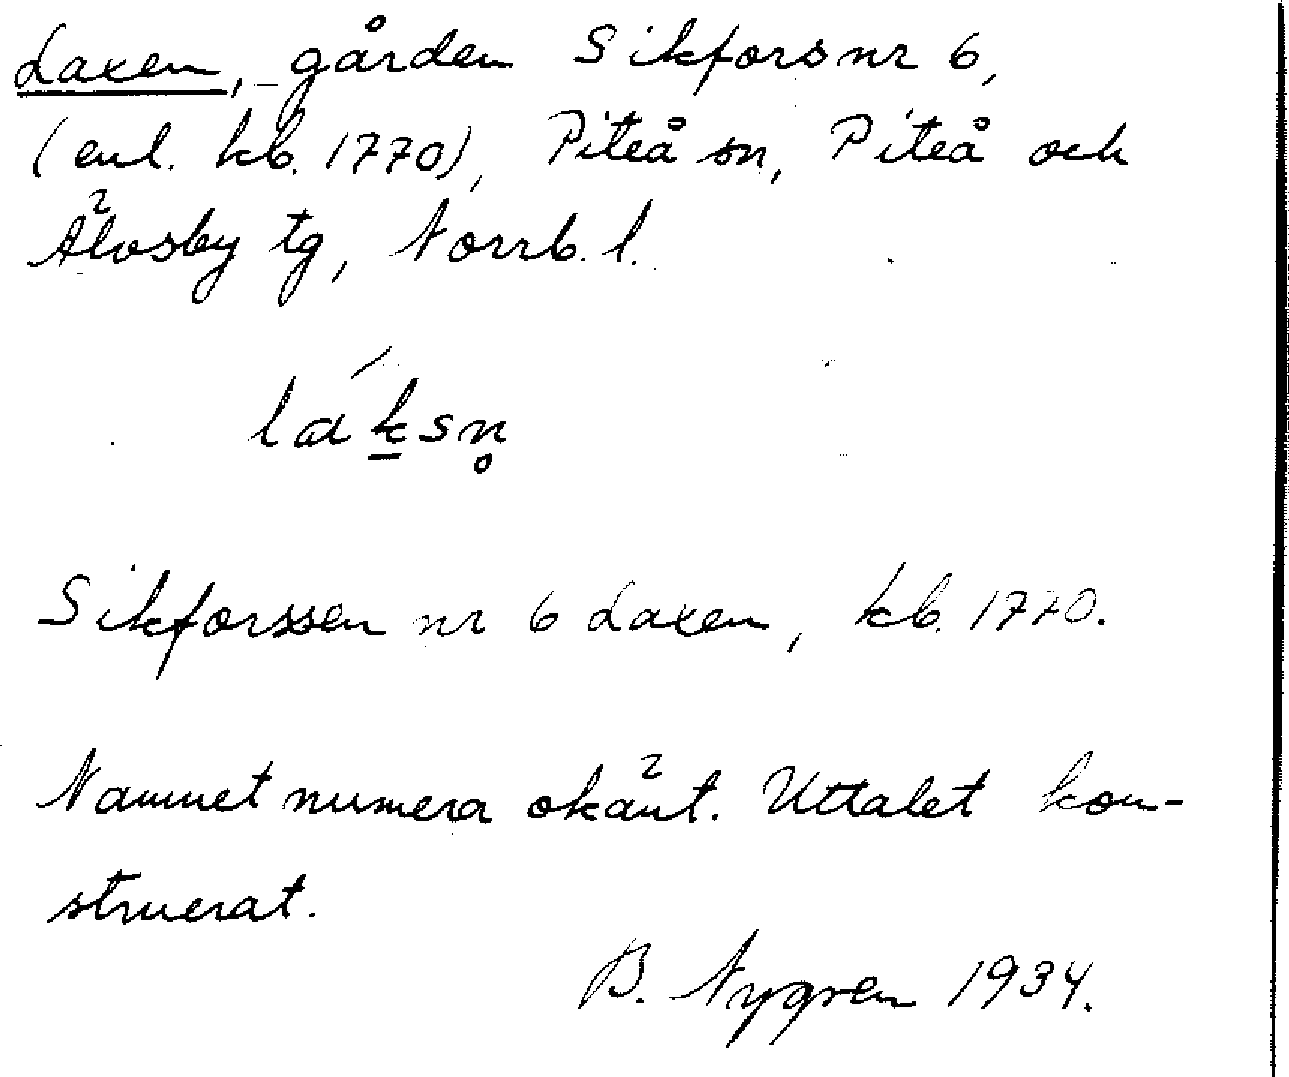 Laxen, gården Sikfors nr 6,
(enl. kb. 1770), Piteå sn, Piteå och
Älvsby tg, Norrb. l.
láksn̥
Sikforssen nr 6 Laxen, kb. 1770.
Namnet numera okänt. Uttalet kon-
struerat.
B. Nygren 1934.